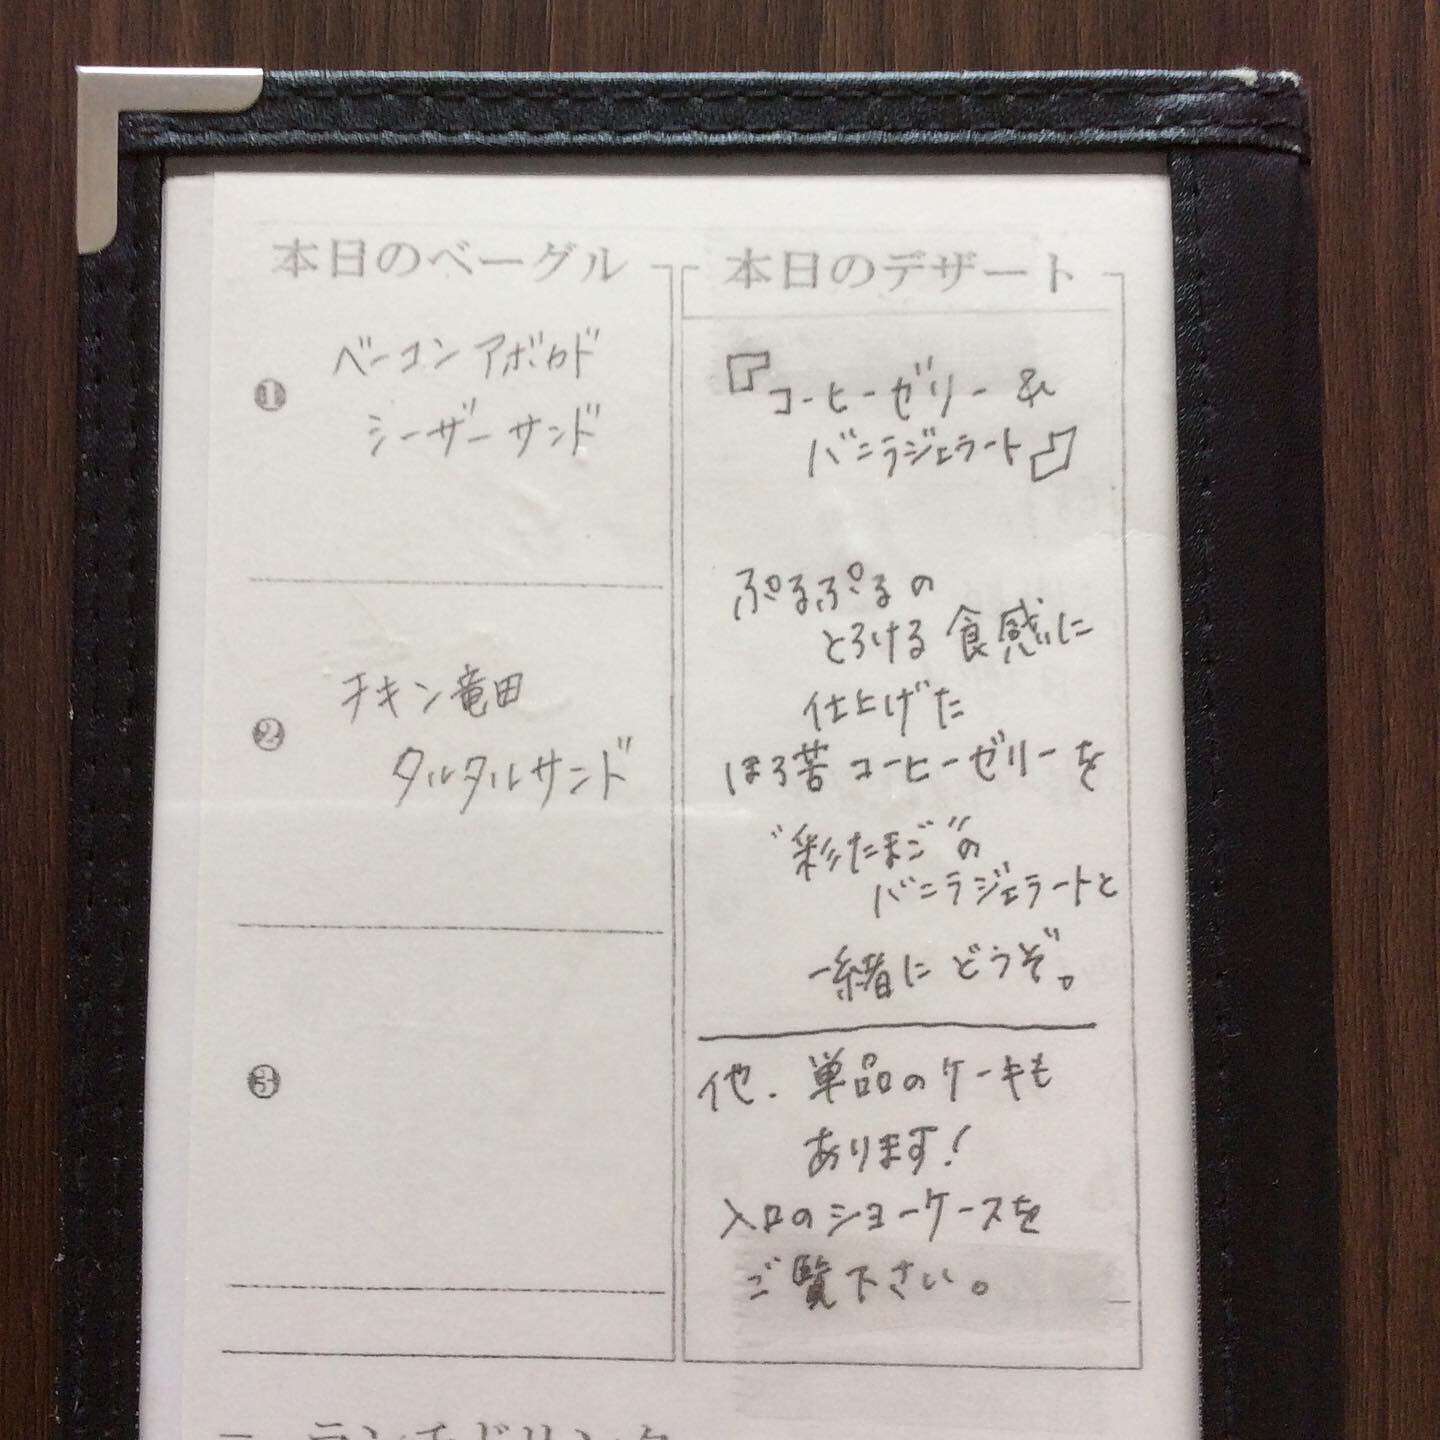 本日のベーグル
❶
ベーコンアボカド
シーザーサンド
❷
チキン竜田
タルタルサンド
❸
本日のデザート
『コーヒーゼリー &
バニラジェラート』
ぷるぷるの
とろける食感に
仕上げた
ほろ苦コーヒーゼリーを
"彩たまご"の
バニラジェラートと
一緒にどうぞ。
他、単品のケーキも
あります!
入口のショーケースを
ご覧下さい。
ランチドリンク